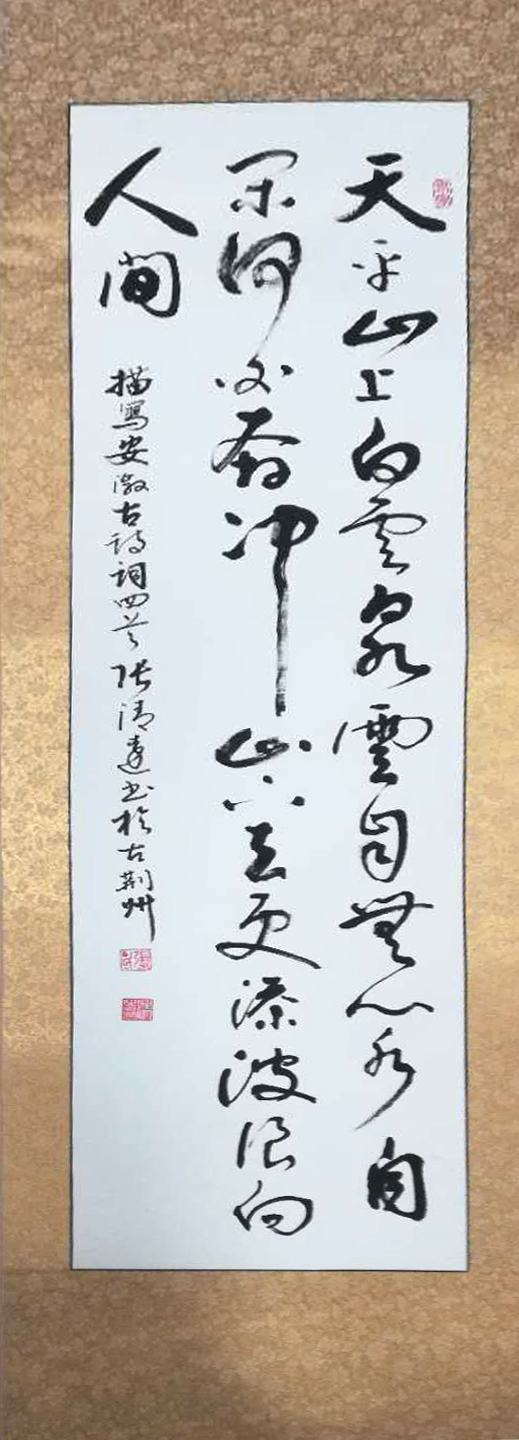 天平山上白雲泉雲自無心水自
闲何必奔冲山下去更添波浪向
人间
描寫安徽古诗词四首 张清遠书於古荆州